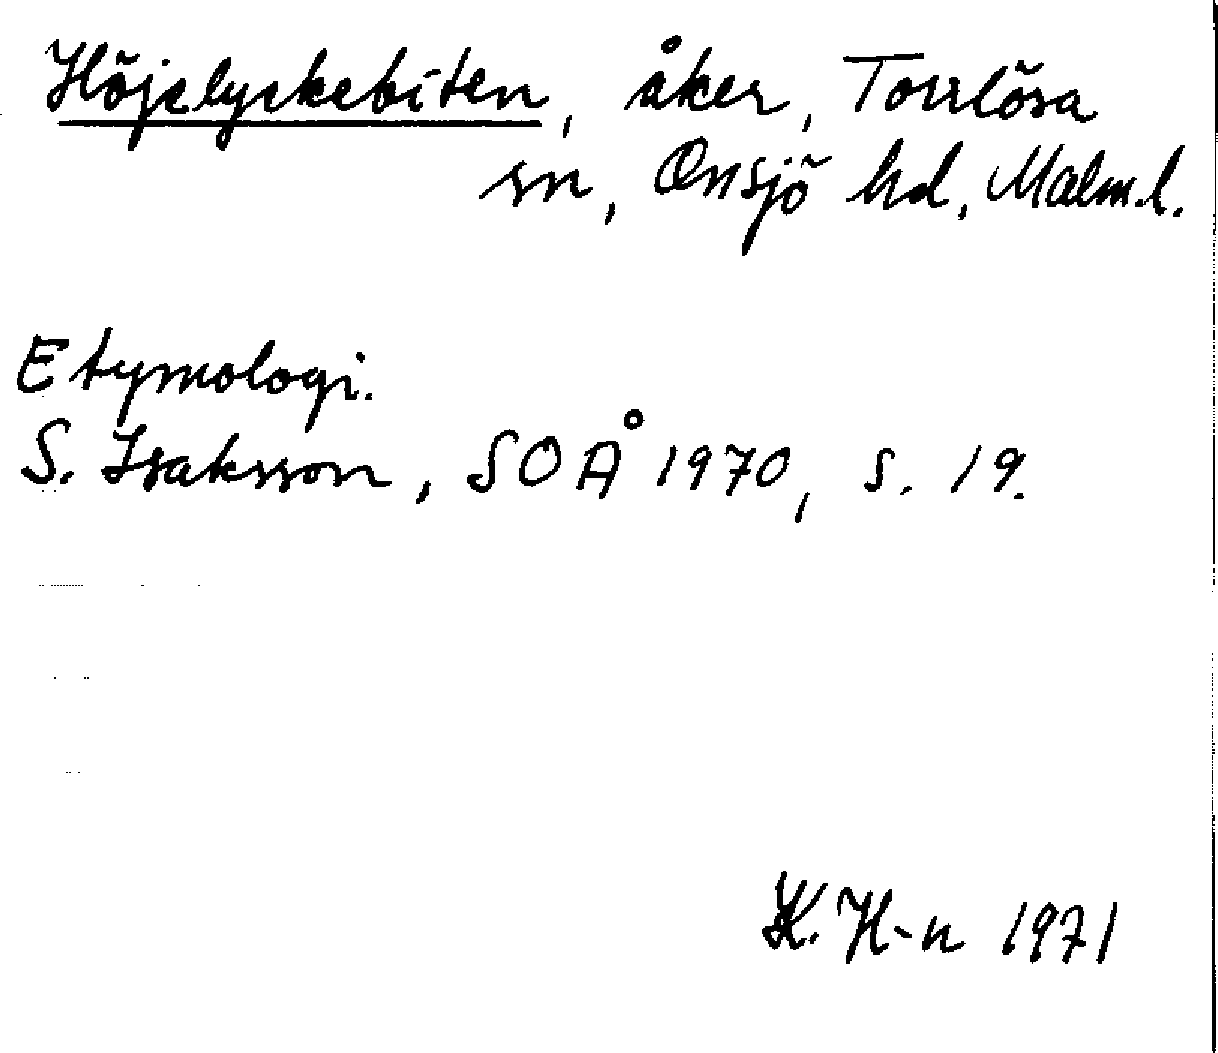 Höjelyckebiten, åker, Torrlösa
sn, Onsjö hd, Malm.l.
Etymologi.
S. Isaksson, SOÅ 1970, s. 19.
K. H-n 1971